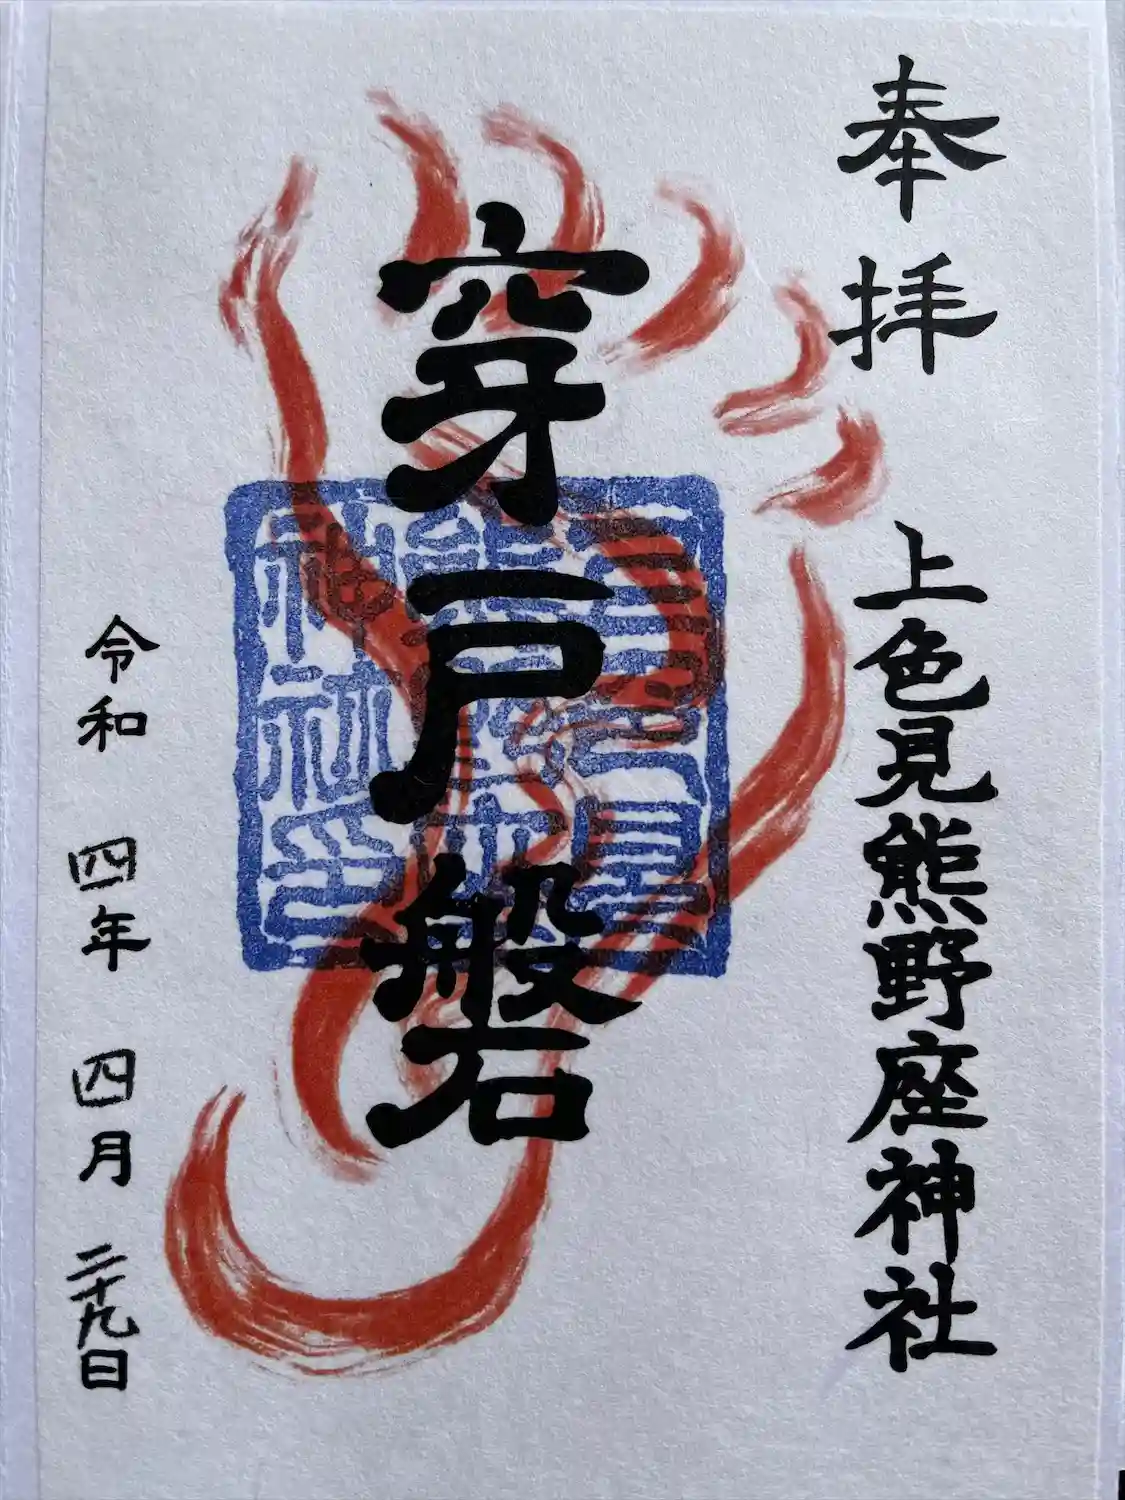 奉拝
上色見熊野座神社
穿戸磐
上色見
熊野座
神社印
令和四年四月二十九日